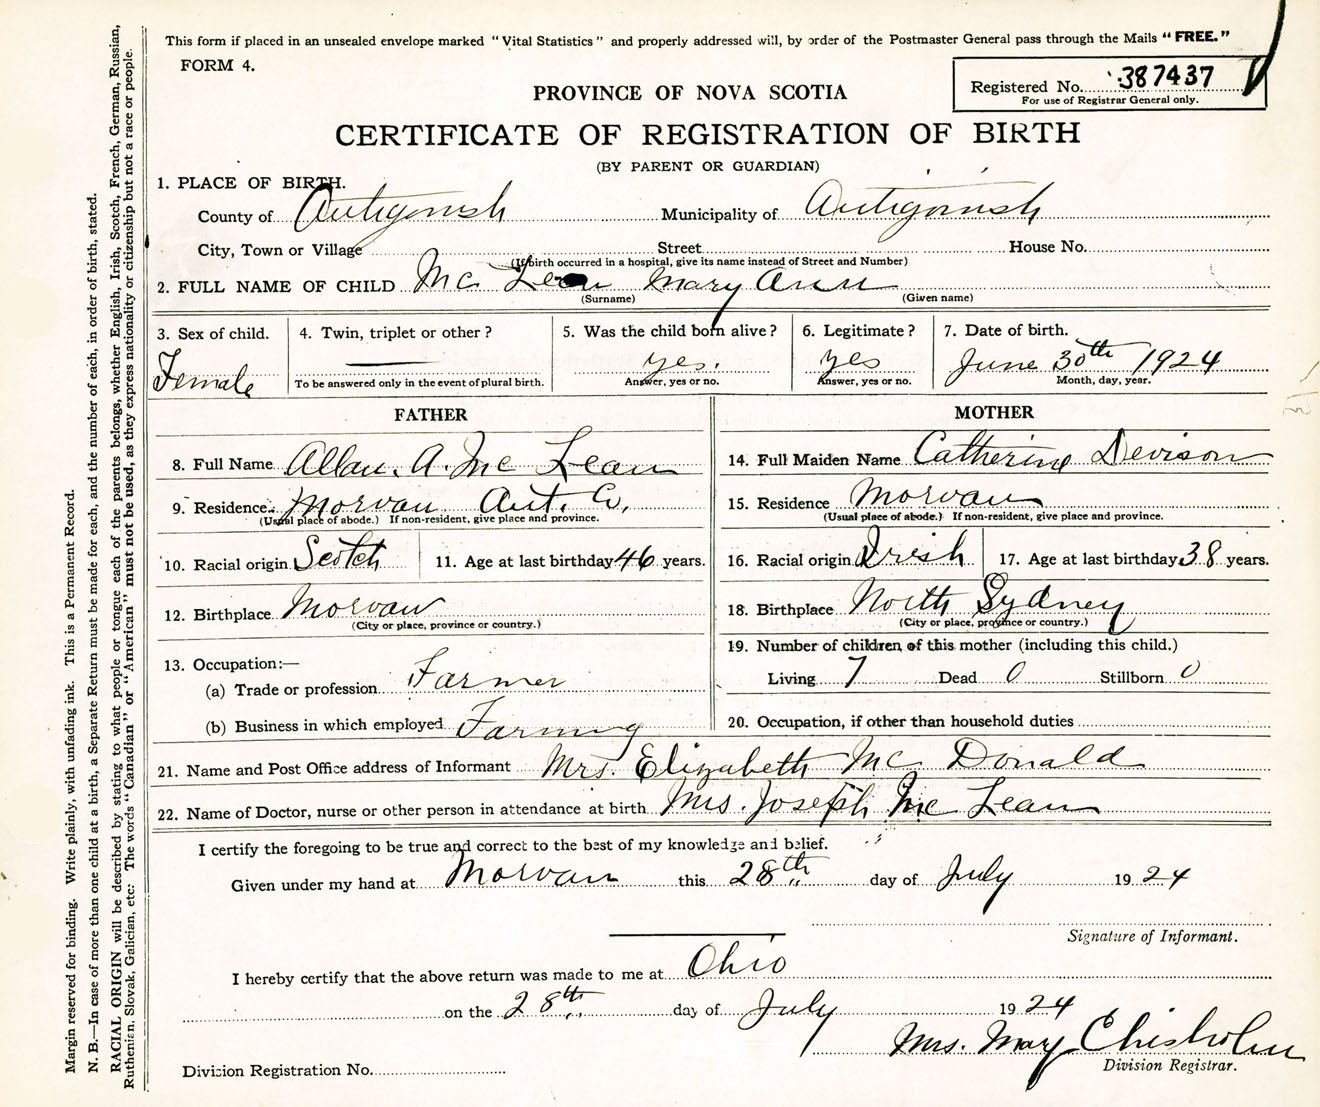 This form if placed in an unsealed envelope marked "Vital Statistics" and properly addressed will, by order of the Postmaster General pass through the Mails "FREE."
FORM 4.
Registered No. 387437
For use of Registrar General only.
PROVINCE OF NOVA SCOTIA
CERTIFICATE OF REGISTRATION OF BIRTH
(BY PARENT OR GUARDIAN)
1. PLACE OF BIRTH.
County of Antigonish Municipality of Antigonish
City, Town or Village Street House No.
(If birth occurred in a hospital, give its name instead of Street and Number)
2. FULL NAME OF CHILD Mc Lean Mary Ann
(Surname) (Given name)
3. Sex of child. 4. Twin, triplet or other? 5. Was the child born alive? 6. Legitimate? 7. Date of birth.
Female yes. yes June 30th 1924
To be answered only in the event of plural birth. Answer, yes or no. Answer, yes or no. Month, day, year.
FATHER
8. Full Name Allan. A. Mc Lean
9. Residence. Morvan Ant. Co,
(Usual place of abode.) If non-resident, give place and province.
10. Racial origin Scotch 11. Age at last birthday 46 years.
12. Birthplace Morvan
(City or place, province or country.)
13. Occupation:—
(a) Trade or profession Farmer
(b) Business in which employed Farming
MOTHER
14. Full Maiden Name Catherine Devison
15. Residence Morvan
(Usual place of abode.) If non-resident, give place and province.
16. Racial origin Irish 17. Age at last birthday 38 years.
18. Birthplace North Sydney
(City or place, province or country.)
19. Number of children of this mother (including this child.)
Living 7 Dead 0 Stillborn 0
20. Occupation, if other than household duties
21. Name and Post Office address of Informant Mrs. Elizabeth Mc Donald
22. Name of Doctor, nurse or other person in attendance at birth Mrs. Joseph Mc Lean
I certify the foregoing to be true and correct to the best of my knowledge and belief.
Given under my hand at Morvan this 28th day of July 1924
Signature of Informant.
I hereby certify that the above return was made to me at Ohio
on the 28th day of July 1924
Mrs. May Chisholm
Division Registrar.
Division Registration No.
Margin reserved for binding. Write plainly, with unfading ink. This is a Permanent Record.
N. B.—In case of more than one child at a birth, a Separate Return must be made for each, and the number of each, in order of birth, stated.
RACIAL ORIGIN will be described by stating to what people or tongue each of the parents belongs, whether English, Irish, Scotch, French, German, Russian,
Ruthenian, Slovak, Galician, etc: The words "Canadian" or "American" must not be used, as they express nationality or citizenship but not a race or people.